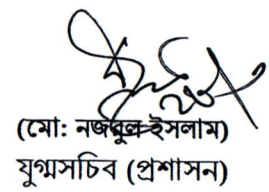 (মো: নজরুল ইসলাম)
যুগ্মসচিব (প্রশাসন)